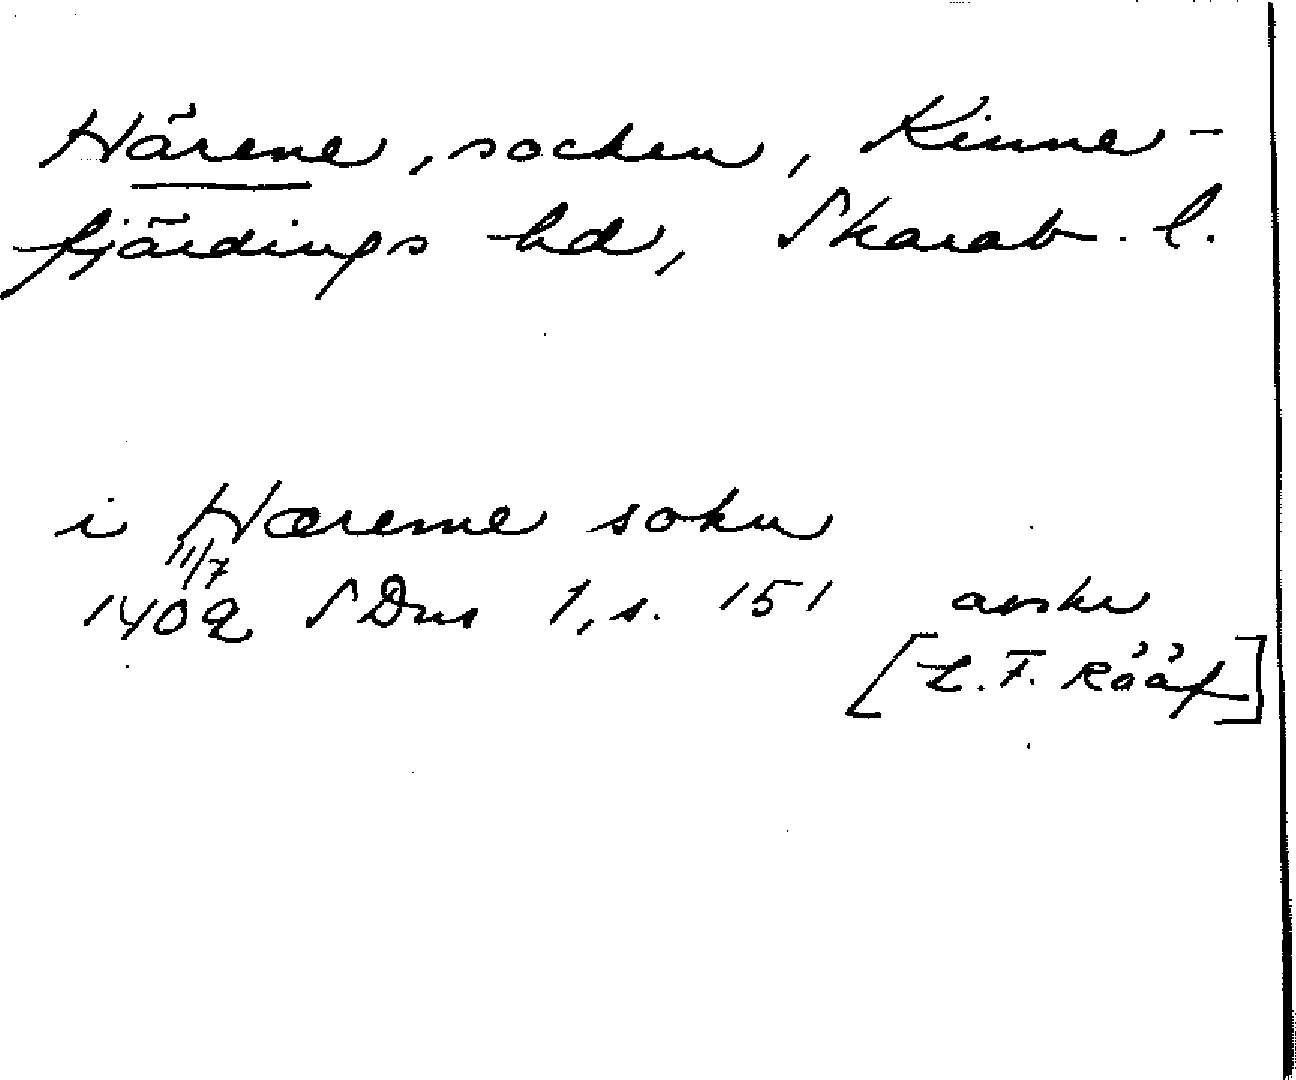 Härene, socken, Kinne-
fjärdings hd, Skarab. l.
i Hæreme sokn
11/7
1402 SDns 1, s. 151 avskr
[L. F. Rääf]